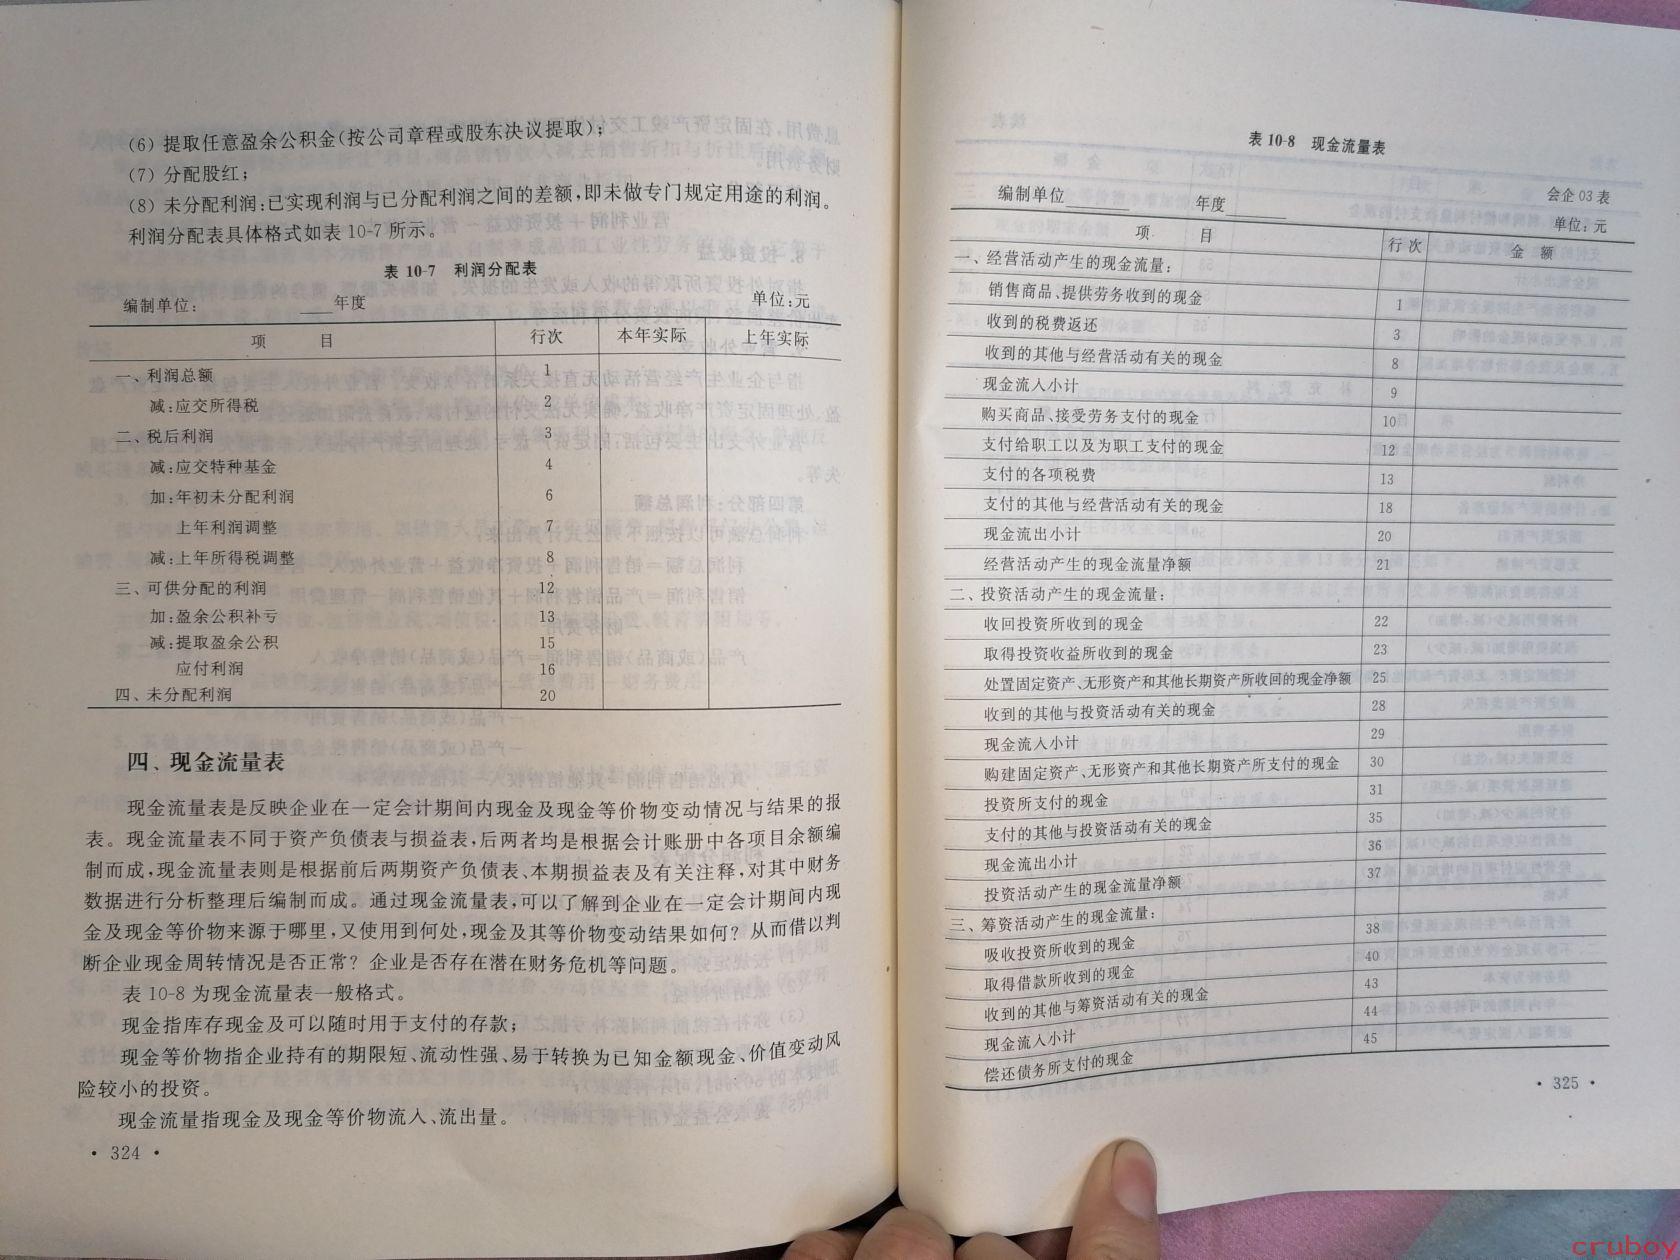 (6) 提取任意盈余公积金(按公司章程或股东决议提取)；
(7) 分配股红；
(8) 未分配利润:已实现利润与已分配利润之间的差额,即未做专门规定用途的利润。
利润分配表具体格式如表 10-7 所示。
表 10-7 利润分配表
编制单位: ____年度 单位:元
项 目 行次 本年实际 上年实际
一、利润总额 1
减:应交所得税 2
二、税后利润 3
减:应交特种基金 4
加:年初未分配利润 6
上年利润调整 7
减:上年所得税调整 8
三、可供分配的利润 12
加:盈余公积补亏 13
减:提取盈余公积 15
应付利润 16
四、未分配利润 20
四、现金流量表
现金流量表是反映企业在一定会计期间内现金及现金等价物变动情况与结果的报
表。现金流量表不同于资产负债表与损益表,后两者均是根据会计账册中各项目余额编
制而成,现金流量表则是根据前后两期资产负债表、本期损益表及有关注释,对其中财务
数据进行分析整理后编制而成。通过现金流量表,可以了解到企业在一定会计期间内现
金及现金等价物来源于哪里,又使用到何处,现金及其等价物变动结果如何?从而借以判
断企业现金周转情况是否正常?企业是否存在潜在财务危机等问题。
表 10-8 为现金流量表一般格式。
现金指库存现金及可以随时用于支付的存款;
现金等价物指企业持有的期限短、流动性强、易于转换为已知金额现金、价值变动风
险较小的投资。
现金流量指现金及现金等价物流入、流出量。
· 324 ·
表 10-8 现金流量表
会企 03 表
编制单位______ 年度______ 单位:元
项 目 行次 金 额
一、经营活动产生的现金流量:
销售商品、提供劳务收到的现金 1
收到的税费返还 3
收到的其他与经营活动有关的现金 8
现金流入小计 9
购买商品、接受劳务支付的现金 10
支付给职工以及为职工支付的现金 12
支付的各项税费 13
支付的其他与经营活动有关的现金 18
现金流出小计 20
经营活动产生的现金流量净额 21
二、投资活动产生的现金流量:
收回投资所收到的现金 22
取得投资收益所收到的现金 23
处置固定资产、无形资产和其他长期资产所收回的现金净额 25
收到的其他与投资活动有关的现金 28
现金流入小计 29
购建固定资产、无形资产和其他长期资产所支付的现金 30
投资所支付的现金 31
支付的其他与投资活动有关的现金 35
现金流出小计 36
投资活动产生的现金流量净额 37
三、筹资活动产生的现金流量:
吸收投资所收到的现金 38
取得借款所收到的现金 40
收到的其他与筹资活动有关的现金 43
现金流入小计 44
偿还债务所支付的现金 45
· 325 ·
cruboy